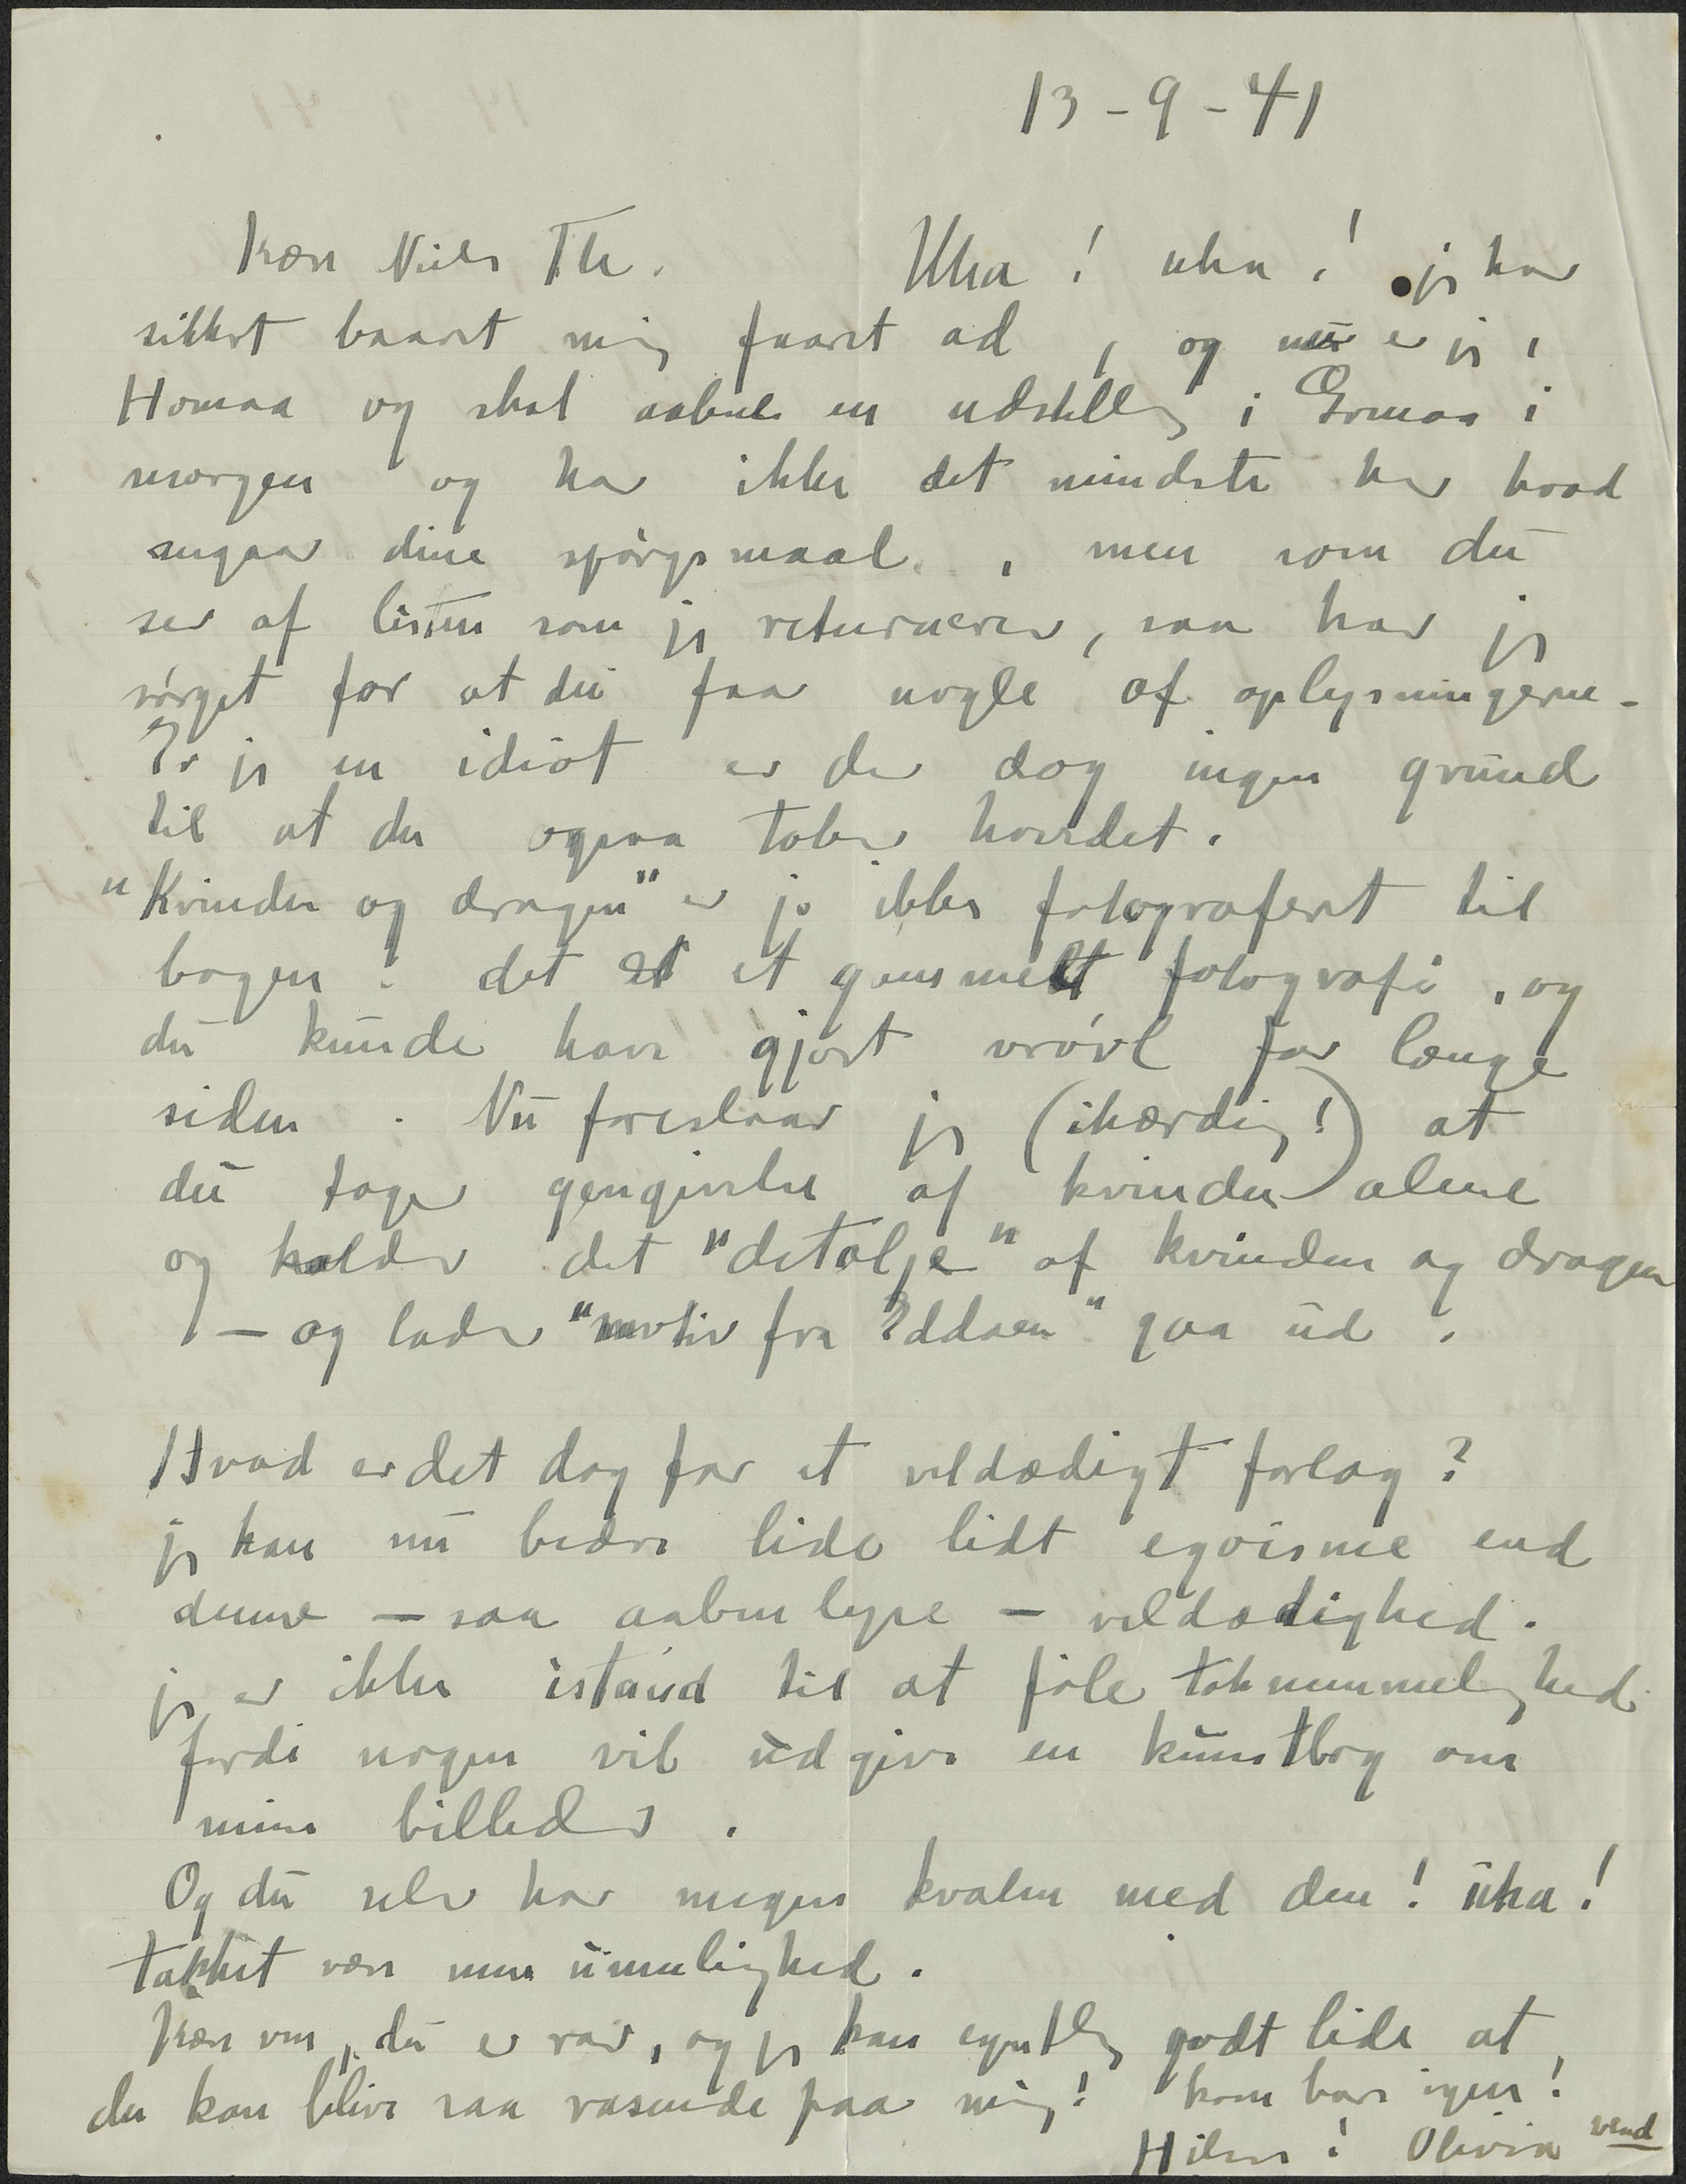 13-9-41
Kære Niels Th. Uha! uha! jeg har
sikkert baaret mig faaret ad, og nu er jeg i
Homaa og skal aabne en udstilling i Grenaa i
morgen og har ikke det mindste her hvad
angaar dine spørgsmaal, men som du
ser af listen som jeg returnerer, saa har jeg
sørget for at du faar nogle af oplysningerne -
Er jeg en idiot er der dog ingen grund
til at du ogsaa taber hovedet.
"Kvinden og dragen" er jo ikke fotograferet til
bogen: det er et gammelt fotografi, og
du kunde have gjort vrøvl for længe
siden. Nu foreslaar jeg (ihærdig!) at
du tager gengivelse af kvinden alene
og kalder det "detalje" af kvinden og dragen
- og lader "motiv fra Eddaen" gaa ud.
Hvad er det dog for et veldædigt forlag?
jeg kan nu bedre lide lidt egoisme end
denne - saa aabenlyse - veldædighed.
jeg er ikke istand til at føle taknemmelighed
fordi nogen vil udgive en kunstbog om
mine billeder.
Og du selv har megen kvaler med den! uha!
takket være min umulighed.
Kære ven, du er rar, og jeg kan egentlig godt lide at
du kan blive saa rasende paa mig! kom bare igen!
Hilsen! Olivia vend